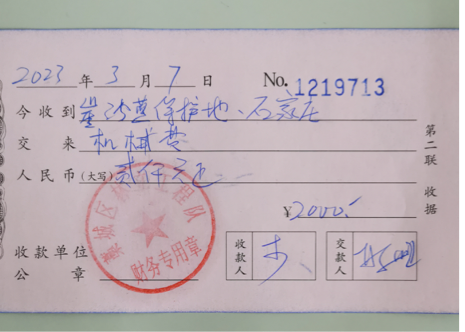 2023 年 3 月 7 日 No. 1219713
今收到 保护地、石家庄
交来 机械费
人民币(大写) 贰仟元正
¥2000.-
第二联 收据
收款单位公章
藁城区 工程队
财务专用章
收款人
交款人